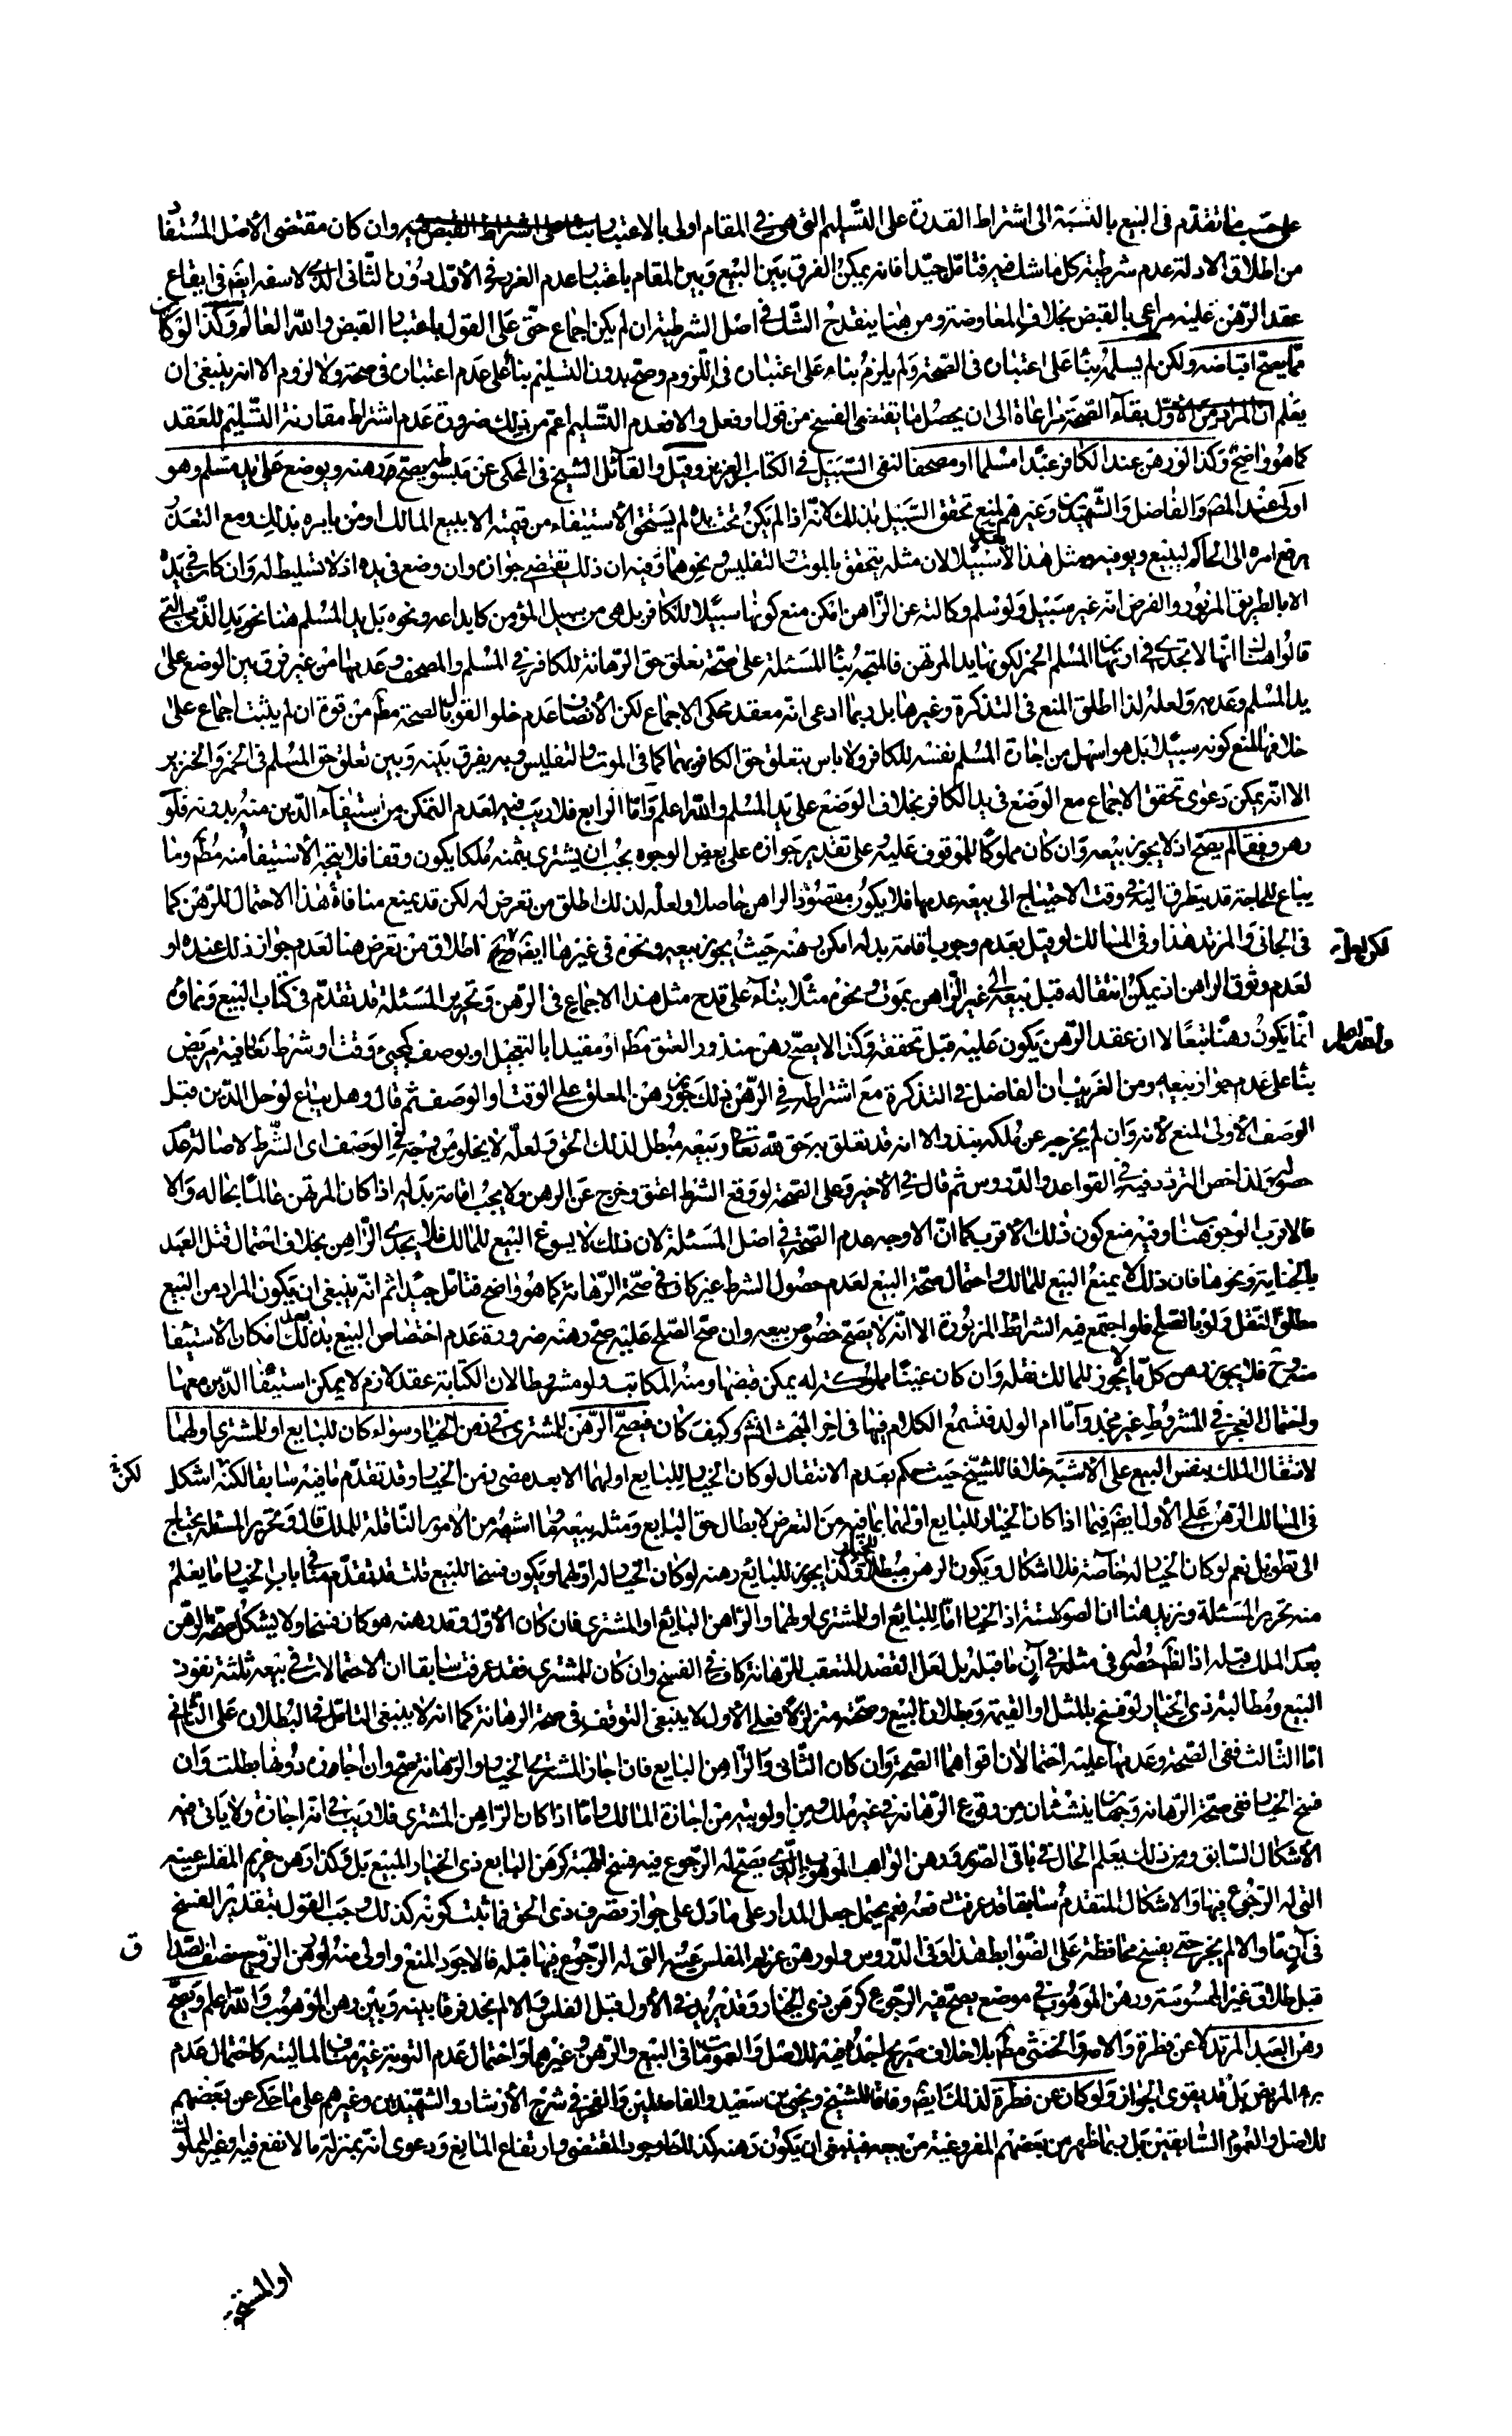 على حسب ما تقدم فى البيع بالنسبة الى اشتراط القدرة على التسليم التى هى فى المقام اولى بالاعتبار بناء على اشتراط القبض فيه وان كان مقتضى الأصل المستفاد
من اطلاق الادلة عدم شرطية كل ما شك فيه فتامل جيدا فانه يمكن الفرق بين البيع وبين المقام باعتبار عدم الغرر فى الأول دون الثانى الذى لا سفه ايضا فى ايقاع
عقد الرهن عليه مراعى بالقبض بخلاف المعاوضة ومن هنا ينقدح الشك فى اصل الشرطية ان لم يكن اجماع حتى على القول باعتبار القبض والله العالم وكذا لو كان
مما يصح اقباضه ولكن لم يسلمه بناء على اعتباره فى الصحة ولم يلزم بناء على اعتباره فى اللزوم وصح بدون التسليم بناء على عدم اعتباره فى صحة ولا لزوم الا انه ينبغى ان
يعلم ان المراد من الأول بقاء الصحة مراعاة الى ان يحصل ما يقتضى الفسخ من قول او فعل والا فعدم التسليم اعم من ذلك ضرورة عدم اشتراط مقارنة التسليم للعقد
كما هو واضح وكذا لو رهن عند الكافر عبدا مسلما او مصحفا لنفى السبيل فى الكتاب العزيز وقيل والقائل الشيخ فى المحكى عن مبسوطه يصح رهنه ويوضع على يد مسلم وهو
اولى عند المص والفاضل والشهيدين وغيرهم لمنع تحقق السبيل بذلك لانه اذا لم يكن تحت يده لم يستحق الأستيفاء من قيمته الا ببيع المالك او من يامره بذلك ومع التعذر
يرفع امره الى الحاكم ليبيع ويوفيه ومثل هذا لا يعد سبيلا لان مثله يتحقق بالموت والتفليس ونحوهما وفيه ان ذلك يقتضى جوازه وان وضع فى يده اذ لا تسليط له وان كان فى يده
الا بالطريق المزبور والفرض انه غير سبيل ولو سلم وكالته عن الراهن امكن منع كونها سبيلا للكافر بل هى من سبيل المؤمن كايداعه ونحوه بل يد المسلم هنا نحو يد الذمى التى
قالوا هناك انها لا تجدى فى ارتهان المسلم الخمر لكونها يد المرتهن فالمتجه بناء المسئلة على صحة تعلق حق الرهانة للكافر فى المسلم والمصحف وعدمها من غير فرق بين الوضع على
يد المسلم وعدمه ولعله لذا اطلق المنع فى التذكرة وغيرها بل ربما ادعى انه معقد محكى الاجماع لكن الأنصاف عدم خلو القول بالصحة مط من قوة ان لم يثبت اجماع على
خلافها لمنع كونه سبيلا بل هو اسهل من اجارة المسلم نفسه للكافر ولا باس بتعلق حق الكافر بهما كما فى الموت والتفليس وبه يفرق بينه وبين تعلق حق المسلم فى الخمر والخنزير
الا انه يمكن دعوى تحقق الاجماع مع الوضع فى يد الكافر بخلاف الوضع على يد المسلم والله اعلم واما الرابع فلا ريب فيه لعدم التمكن من استيفاء الدين منه بدونه فلو
رهن وقفا لم يصح اذ لا يجوز بيعه وان كان مملوكا للموقوف عليه وعلى تقدير جوازه على بعض الوجوه يجب ان يشترى بثمنه ملكا يكون وقفا فلا يتجه الأستيفاء منه مط وما
يباع للحاجة قد يتطرق اليه فى وقت الاحتياج الى بيعه عدمها فلا يكون مقصود الراهن حاصلا ولعله لذلك اطلق من تعرض له لكن قد يمنع منافاة هذا الاحتمال للرهن كما
فى الجانى والمرتد هذا وفى المسالك لو قيل بعدم وجوب اقامة بدله امكن رهنه حيث يجوز بيعه ونحوه فى غيرها ايضا اطلاق من تعرض هنا لعدم جواز ذلك عنده او
لكن لعله
لعدم وثوق الراهن اذ يمكن انتقاله قبل بيعه الى غير الراهن بموت ونحوه مثلا بناء على قدح مثل هذا الاجماع فى الرهن وتحرير المسئلة قد تقدم فى كتاب البيع ونماؤه
انما يكون رهنا تبعا لا ان عقد الرهن يكون عليه قبل تحققه وكذا لا يصح رهن منذور العتق مط او مقيدا بالتعجيل او بوصف كمجئ وقت او شرط كعافية مريض
بناء على عدم جواز بيعه ومن الغريب ان الفاضل فى التذكرة مع اشتراطه فى الرهن ذلك جوز رهن المعلق على الوقت او الوصف ثم قال وهل يباع لو حل الدين قبل
الوصف الأولى المنع لانه وان لم يخرج عن ملكه بنذره الا انه قد تعلق به حق لله تعالى وبيعه مبطل لذلك الحق ولعله لا يخلو من وجه فى الوصف اى الشرط لاصالة عدم
حصوله ولذا خص التردد فيه فى القواعد والدروس ثم قال فى الأخير وعلى الصحة لو وقع الشرط اعتق وخرج عن الرهن ولا يجب اقامة بدله اذا كان المرتهن عالما بحاله والا
فالاقرب الوجوب هنا وفيه منع كون ذلك الأقرب كما ان الاوجه عدم الصحة فى اصل المسئلة لان ذلك لا يسوغ البيع للمالك فلا يجدى الراهن بخلاف احتمال قتل العبد
بالجناية ونحوها فان ذلك لا يمنع البيع للمالك واحتمال صحة البيع لعدم حصول الشرط غير كاف فى صحة الرهانة كما هو واضح فتامل جيدا ثم انه ينبغى ان يكون المراد من البيع
مطلق النقل ولو بالصلح فلو اجتمع فيه الشرائط المزبورة الا انه لا يصح خصوص بيعه وان صح الصلح عليه صح رهنه ضرورة عدم اختصاص البيع بذلك بعد امكان الاستيفاء
منه وح فلا يجوز رهن كل ما لا يجوز للمالك نقله وان كان عينا مملوكة له يمكن قبضها ومنه المكاتب ولو مشروطا لان الكتابة عقد لازم لا يمكن استيفاء الدين معها
واحتمال العجز فى المشروط غير مجد واما ام الولد فتسمع الكلام فيها فى اخر المبحث انش وكيف كان فيصح الرهن للمشترى فى زمن الخيار سواء كان للبايع او للمشترى او لهما
لانتقال الملك بنفس البيع على الاشبه خلافا للشيخ حيث حكم بعدم الانتقال لو كان الخيار للبايع او لهما الا بعد مضى زمن الخيار وقد تقدم ما فيه سابقا لكنه اشكل
فى المسالك الرهن على الأول ايضا فيما اذا كان الخيار للبايع او لهما بما فيه من التعرض لابطال حق البايع ومثله بيعه وما اشبهه من الأمور الناقلة للملك قال وتحرير المسئلة يحتاج
الى تطويل نعم لو كان الخيار له خاصة فلا اشكال ويكون الرهن مبطلا للخيار وكذا يجوز للبائع رهنه لو كان الخيار له او لهما ويكون فسخا للبيع قلت قد تقدم منا فى باب الخيار ما يعلم
منه تحرير المسئلة ونزيد هنا ان الصور ستة اذ الخيار اما للبائع او للمشترى او لهما والراهن البايع او المشترى فان كان الأول وقد رهنه هو كان فسخا ولا يشكل صحة الرهن
بعدم الملك قبله اذ الظ حصوله فى مثله فى آن ما قبله بل لعل القصد المتعقب للرهانة كاف فى الفسخ وان كان للمشترى فقد عرفت سابقا ان الاحتمالات فى بيعه ثلثة نفوذ
البيع ومطالبة ذى الخيار لو فسخ بالمثل او القيمة وبطلان البيع وصحته متزلزلا فعلى الأول لا ينبغى التوقف فى صحة الرهانة كما انه لا ينبغى التامل فى البطلان على الثانى
اما الثالث ففى الصحة وعدمها عليه احتمالان اقواهما الصحة وان كان الثانى والراهن البايع فان اجاز المشترى الخيار والرهانة صح وان اجازه دونها بطلت وان
فسخ الخيار ففى صحة الرهانة وجهان ينشئان من وقوع الرهانة فى غير ملك ومن اولويته من اجازة المالك واما اذا كان الراهن المشترى فلا ريب فى انه اجازة ولا ياتى فيه
الأشكال السابق ومن ذلك يعلم الحال فى باقى الصور ورهن الواهب الموهوب الذى يصح له الرجوع فيه فسخ لهبته كرهن البايع ذى الخيار المبيع بل وكذا رهن غريم المفلس عينه
التى له الرجوع فيها والاشكال المتقدم سابقا قد عرفت دفعه نعم يحتمل جعل المدار على ما دل على جواز تصرف ذى الحق فما ثبت كونه كذلك وجب القول بتقدير الفسخ
فى آن ما والا لم يجز حتى يفسخ محافظة على الضوابط هذا وفى الدروس ولو رهن غريم المفلس عينه التى له الرجوع فيها قبله فالاجود المنع واولى منه لو رهن الزوج نصف الصداق
قبل طلاق غير الممسوسة ورهن الموهوب فى موضع يصح فيه الرجوع كرهن ذى الخيار وقد يريد فى الأول قبل الفلس والا لم نجد فرقا بينه وبين رهن الموهوب والله اعلم ويصح
رهن العبد المرتد لا عن فطرة والامة والخنثى مط بلا خلاف صريح اجده فيه للاصل والعمومات فى البيع والرهن وغيرهما واحتمال عدم التوبة غير مناف للمالية كاحتمال عدم
برء المريض بل قد يقوى الجواز ولو كان عن فطرة لذلك ايضا وفاقا للشيخ ويحيى بن سعيد والفاضلين والفخر فى شرح الأرشاد والشهيدين وغيرهم على ما حكى عن بعضهم
للاصل والعموم السابقين بل ربما ظهر من بعضهم المفروغية من بيعه فينبغى ان يكون رهنه كذلك لوجود المقتضى وارتفاع المانع ودعوى انه بمنزلة ما لا نفع فيه وغير المملوك